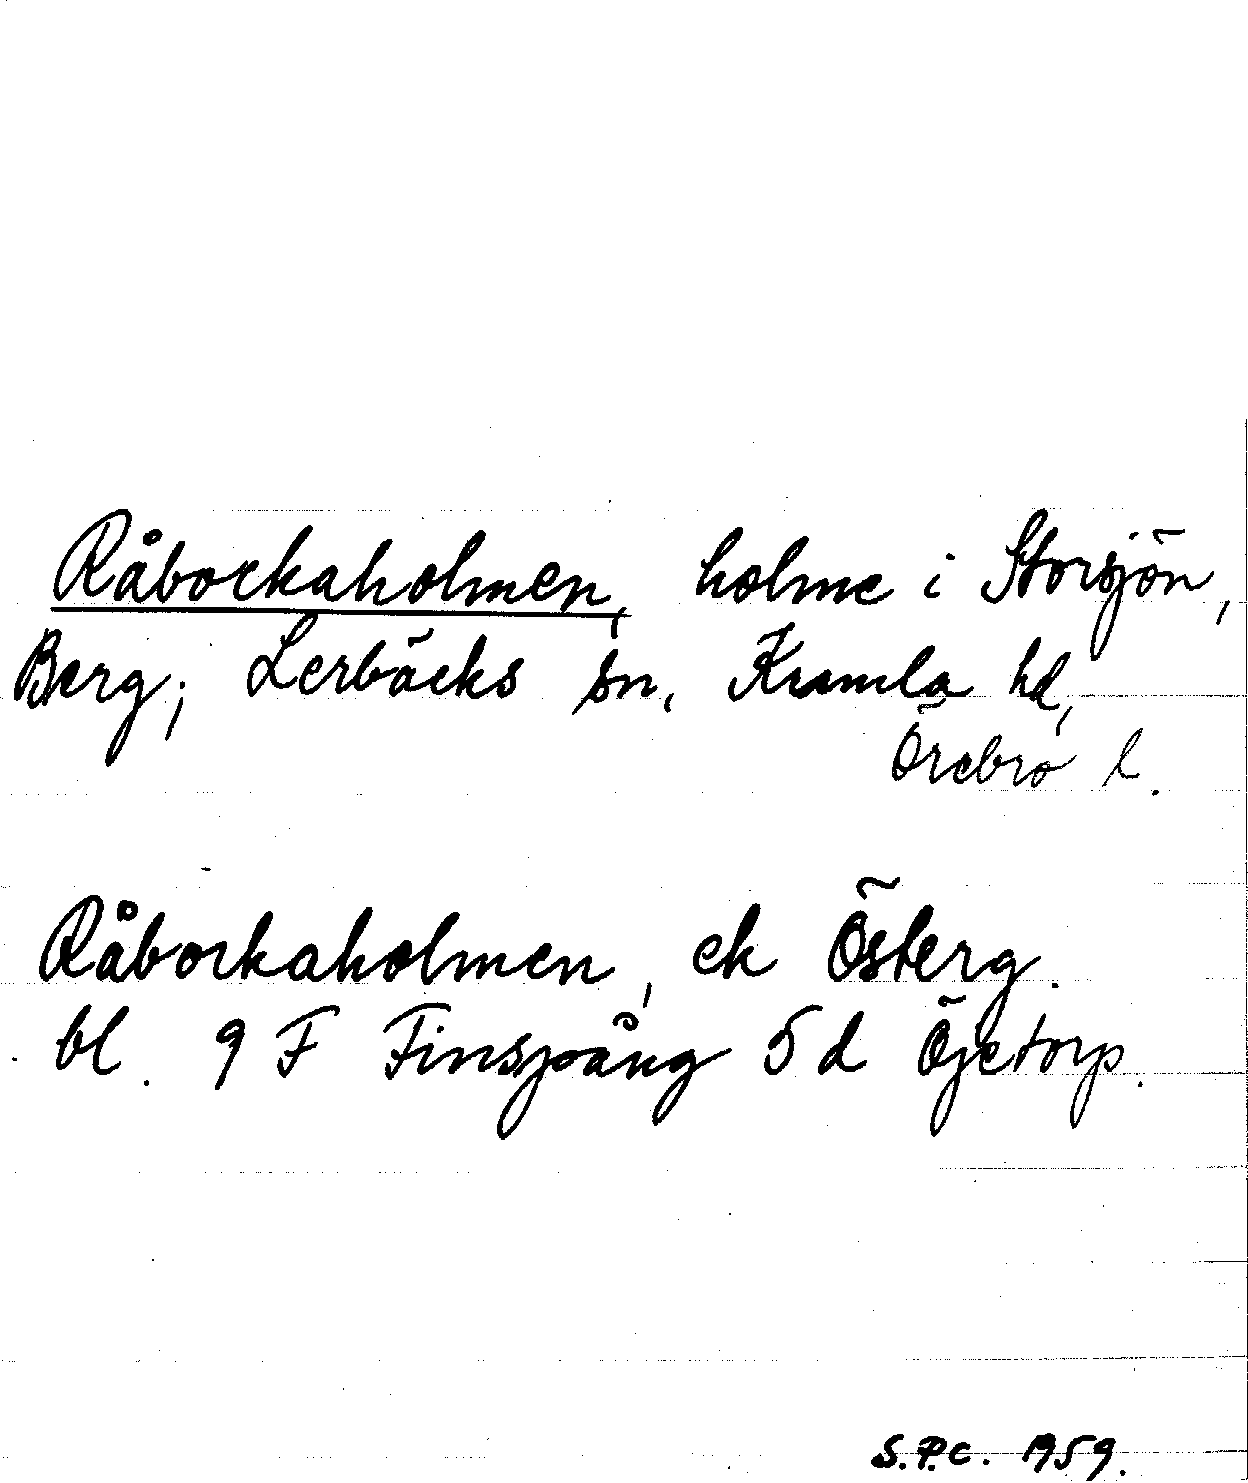 Råbockaholmen, holme i Storsjön,
Berg; Lerbäcks sn, Kumla hd,
Örebro l.
Råbockaholmen, ek Östberg.
bl. 9 F Finspång 5 d Öjetorp.
S.P.C. 1959.